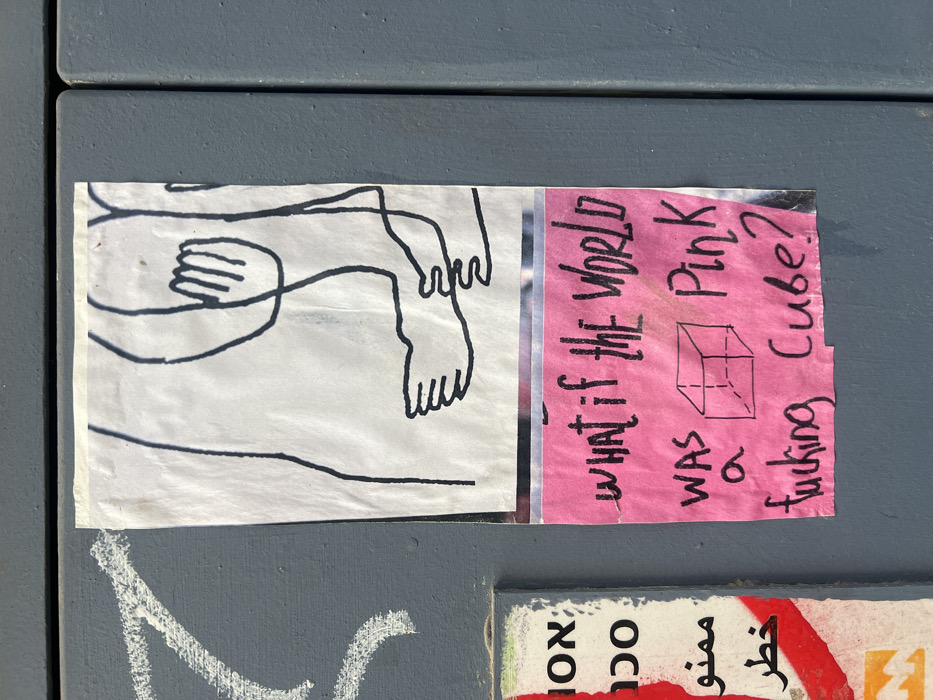 WHAT if thE WORLD
WAS a PinK
fucking Cube?
אסו
סכנ
ممنو
خطر